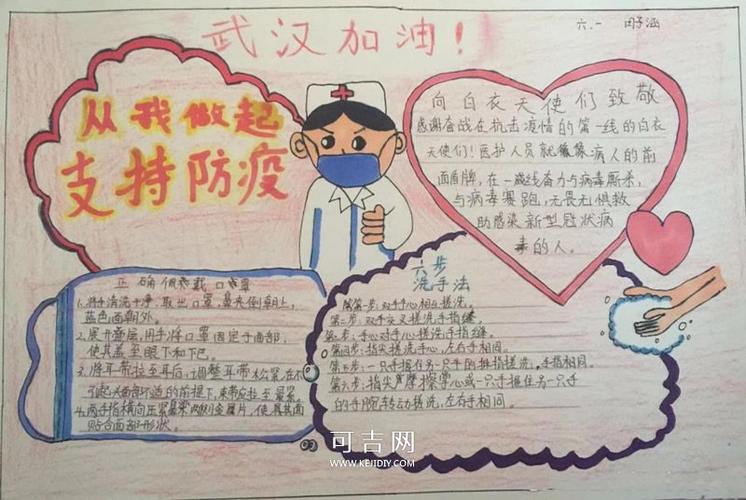 武汉加油!
六.一 田子涵
从我做起
支持防疫
向白衣天使们致敬
感谢奋战在抗击疫情的第一线的白衣
天使们!医护人员就像病人的前
面盾牌,在一线奋力与病毒厮杀,
与病毒赛跑,无畏无惧救
助感染新型冠状病
毒的人。
正确佩戴口罩
1.将手清洗干净,取出口罩,鼻夹侧朝上,
蓝色面朝外。
2.展开叠层,用手将口罩固定于面部,
使其盖至眼下和下巴。
3.将耳带拉至耳后,调整耳带松紧,在不
引起头面部不适的前提下,束带应拉至最紧。
4.两手指横向压紧鼻梁两侧金属片,使其其面
贴合面部形状。
六步
洗手法
第一步:双手手心相互搓洗。
第二步:双手交叉搓洗手指缝,
第三步:手心对手心搓洗手指缝。
第四步:指尖搓洗手心,左右手相同。
第五步:一只手握住另一只手的拇指搓洗,手指相同。
第六步:指尖摩擦掌心或一只手握住另一只手
的手腕转动搓洗,左右手相同。
可吉网
WWW.KEJIDIY.COM